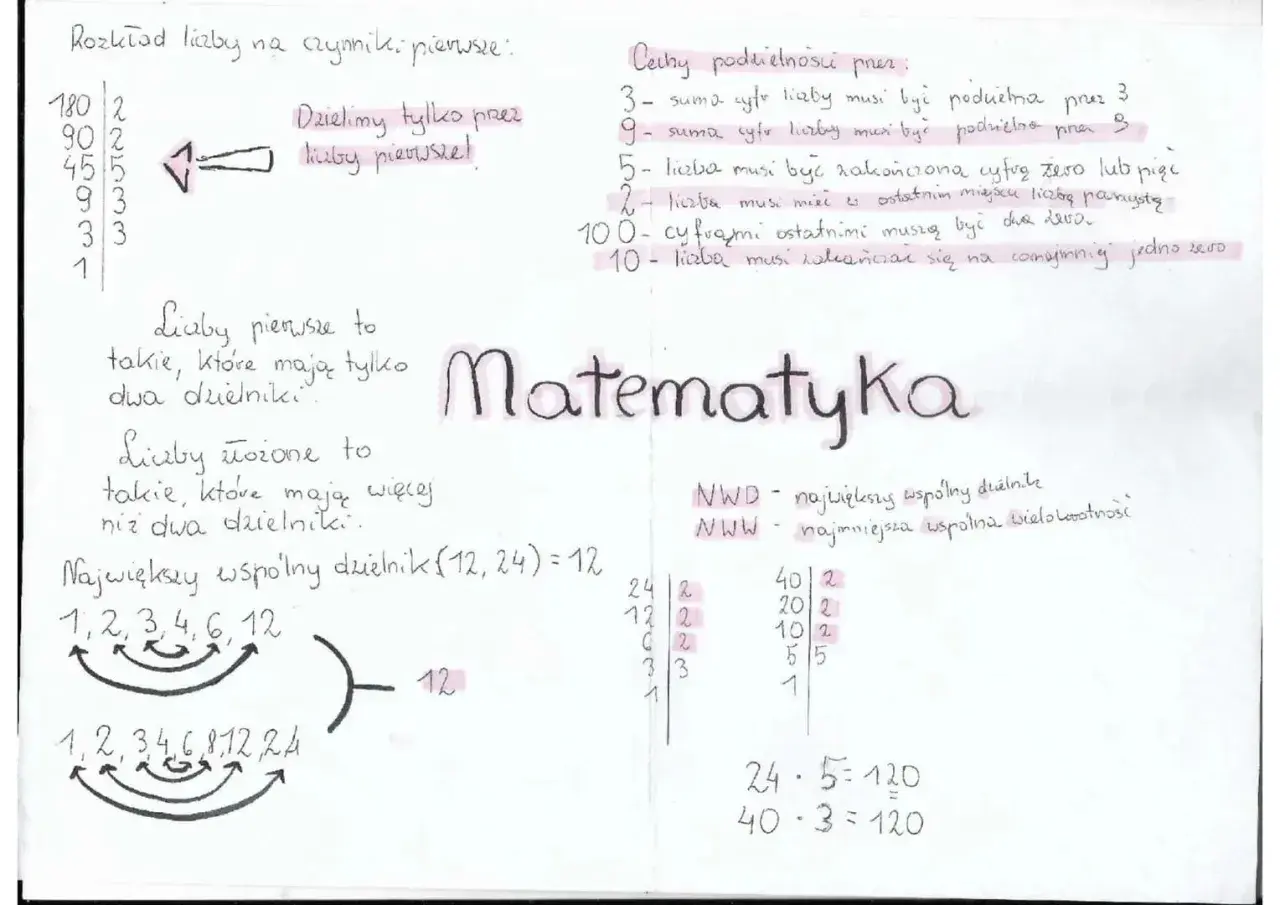 Rozkład liczby na czynniki pierwsze:
180 | 2
90 | 2
45 | 5
9 | 3
3 | 3
1
Dzielimy tylko przez
liczby pierwsze!
Cechy podzielności przez:
3 - suma cyfr liczby musi być podzielna przez 3
9 - suma cyfr liczby musi być podzielna przez 9
5 - liczba musi być zakończona cyfrą zero lub pięć
2 - liczba musi mieć w ostatnim miejscu liczbę parzystą
100 - cyframi ostatnimi muszą być dwa zera.
10 - liczba musi zakańczać się na conajmniej jedno zero
Liczby pierwsze to
takie, które mają tylko
dwa dzielniki.
Matematyka
Liczby złożone to
takie, które mają więcej
niż dwa dzielniki.
Największy wspólny dzielnik (12, 24) = 12
1, 2, 3, 4, 6, 12
12
1, 2, 3, 4, 6, 8, 12, 24
NWD - największy wspólny dzielnik
NWW - najmniejsza wspólna wielokrotność
24 | 2
12 | 2
6 | 2
3 | 3
1
40 | 2
20 | 2
10 | 2
5 | 5
1
24 · 5 = 120
40 · 3 = 120